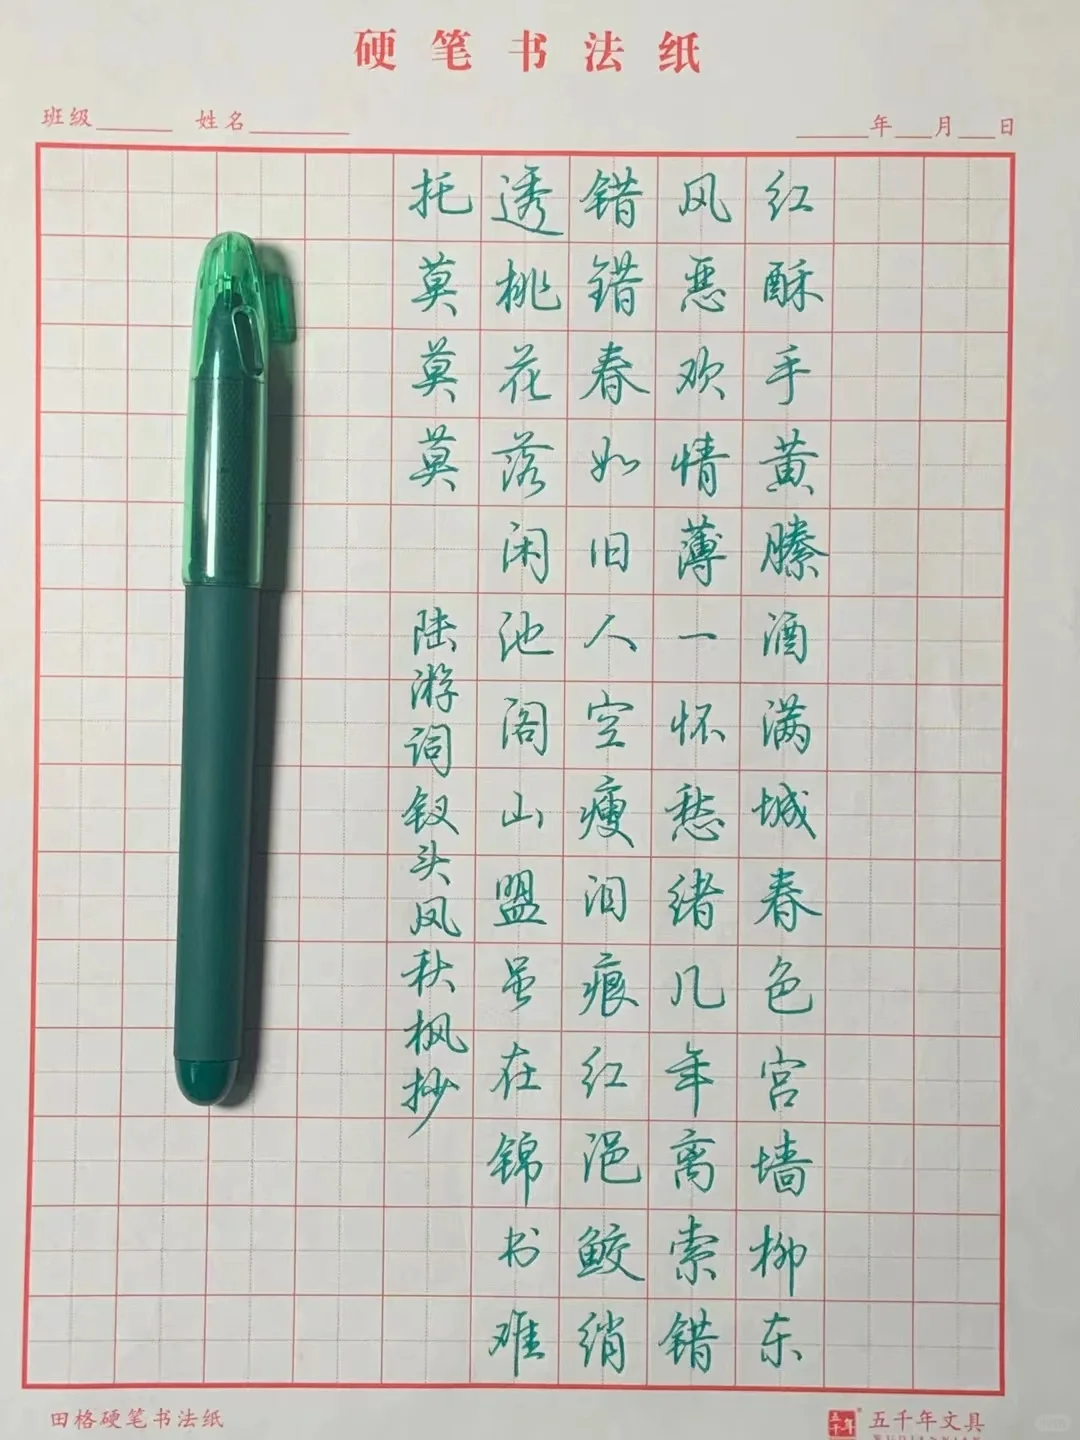 硬笔书法纸
班级 姓名 年 月 日
红酥手黄縢酒满城春色宫墙柳东
风恶欢情薄一怀愁绪几年离索错
错错春如旧人空瘦泪痕红浥鲛绡
透桃花落闲池阁山盟虽在锦书难
托莫莫莫 陆游词钗头凤秋枫抄
田格硬笔书法纸
五千年 五千年文具